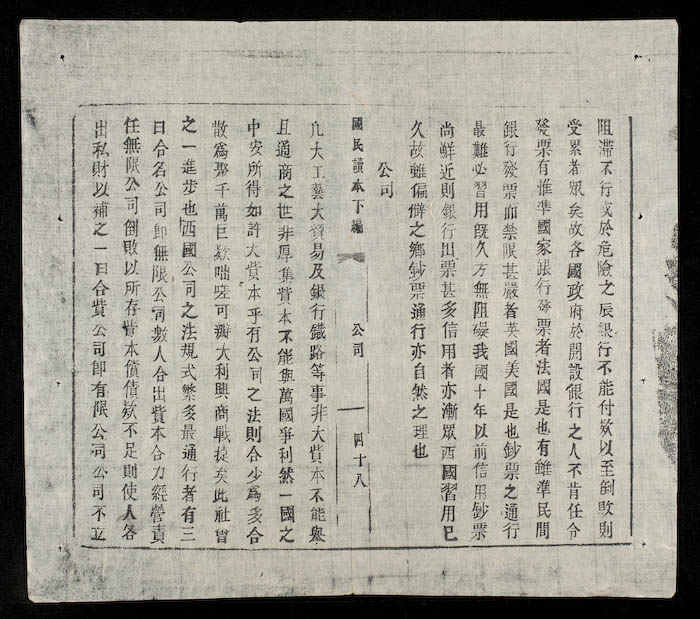 阻滯不行或於危險之辰銀行不能付欵以至倒敗則
受累者眾矣故各國政府於開設銀行之人不肯任令
發票有惟準國家銀行發票者法國是也有雖準民間
銀行發票而禁限甚嚴者英國美國是也鈔票之通行
最難必習用旣久方無阻礙我國十年以前信用鈔票
尚鮮近則銀行出票甚多信用者亦漸眾西國習用已
久故雖偏僻之鄉鈔票通行亦自然之理也
公司
國民讀本下編 公司 四十八
凢大工藝大貿易及銀行鐵路等事非大貲本不能舉
且通商之世非厚集貲本不能與萬國爭利然一國之
中安所得如許大貲本乎有公司之法則合少爲多合
散爲聚千萬巨欵咄嗟可辦大利興商戰捷矣此社會
之一進步也西國公司之法規式繁多最通行者有三
曰合名公司卽無限公司數人合出貲本合力經營責
任無限公司倒敗以所存貲本償債欵不足則使人各
出私財以補之一曰合貲公司卽有限公司公司不立